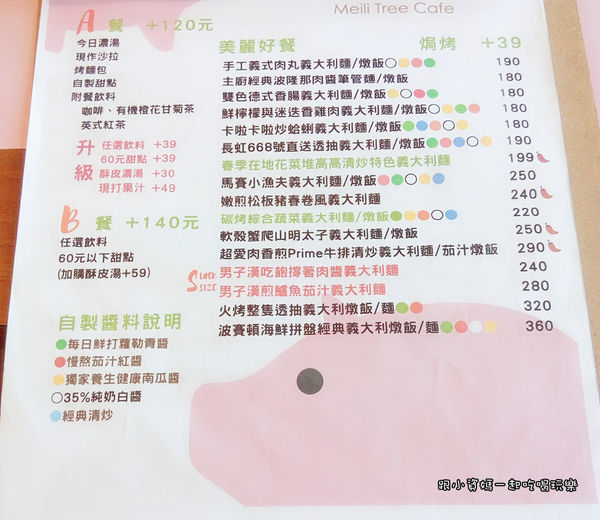 Meili Tree Cafe
A 餐 +120元
今日濃湯
現作沙拉
烤麵包
自製甜點
附餐飲料
咖啡、有機橙花甘菊茶
英式紅茶
升級
任選飲料 +39
60元甜點 +39
酥皮濃湯 +30
現打果汁 +49
B 餐 +140元
任選飲料
60元以下甜點
(加購酥皮湯+59)
自製醬料說明
每日鮮打羅勒青醬
慢熬茄汁紅醬
獨家養生健康南瓜醬
35%純奶白醬
經典清炒
美麗好餐 焗烤 +39
手工義式肉丸義大利麵/燉飯 190
主廚經典波隆那肉醬筆管麵/燉飯 180
雙色德式香腸義大利麵/燉飯 180
鮮檸檬與迷迭香雞肉義大利麵/燉飯 180
卡啦卡啦炒蛤蜊義大利麵/燉飯 180
長虹668號直送透抽義大利麵/燉飯 190
春季在地花菜堆高高清炒特色義大利麵 199
馬賽小漁夫義大利麵/燉飯 250
嫩煎松板豬春卷風義大利麵 240
碳烤綜合蔬菜義大利麵/燉飯 220
軟殼蟹爬山明太子義大利麵/燉飯 250
超愛肉香煎Prime牛排清炒義大利麵/茄汁燉飯 290
SUPER SIZE
男子漢吃飽撐著肉醬義大利麵 240
男子漢煎鱸魚茄汁義大利麵 280
火烤整隻透抽義大利燉飯/麵 320
波賽頓海鮮拼盤經典義大利燉飯/麵 360
跟小資媽一起吃喝玩樂